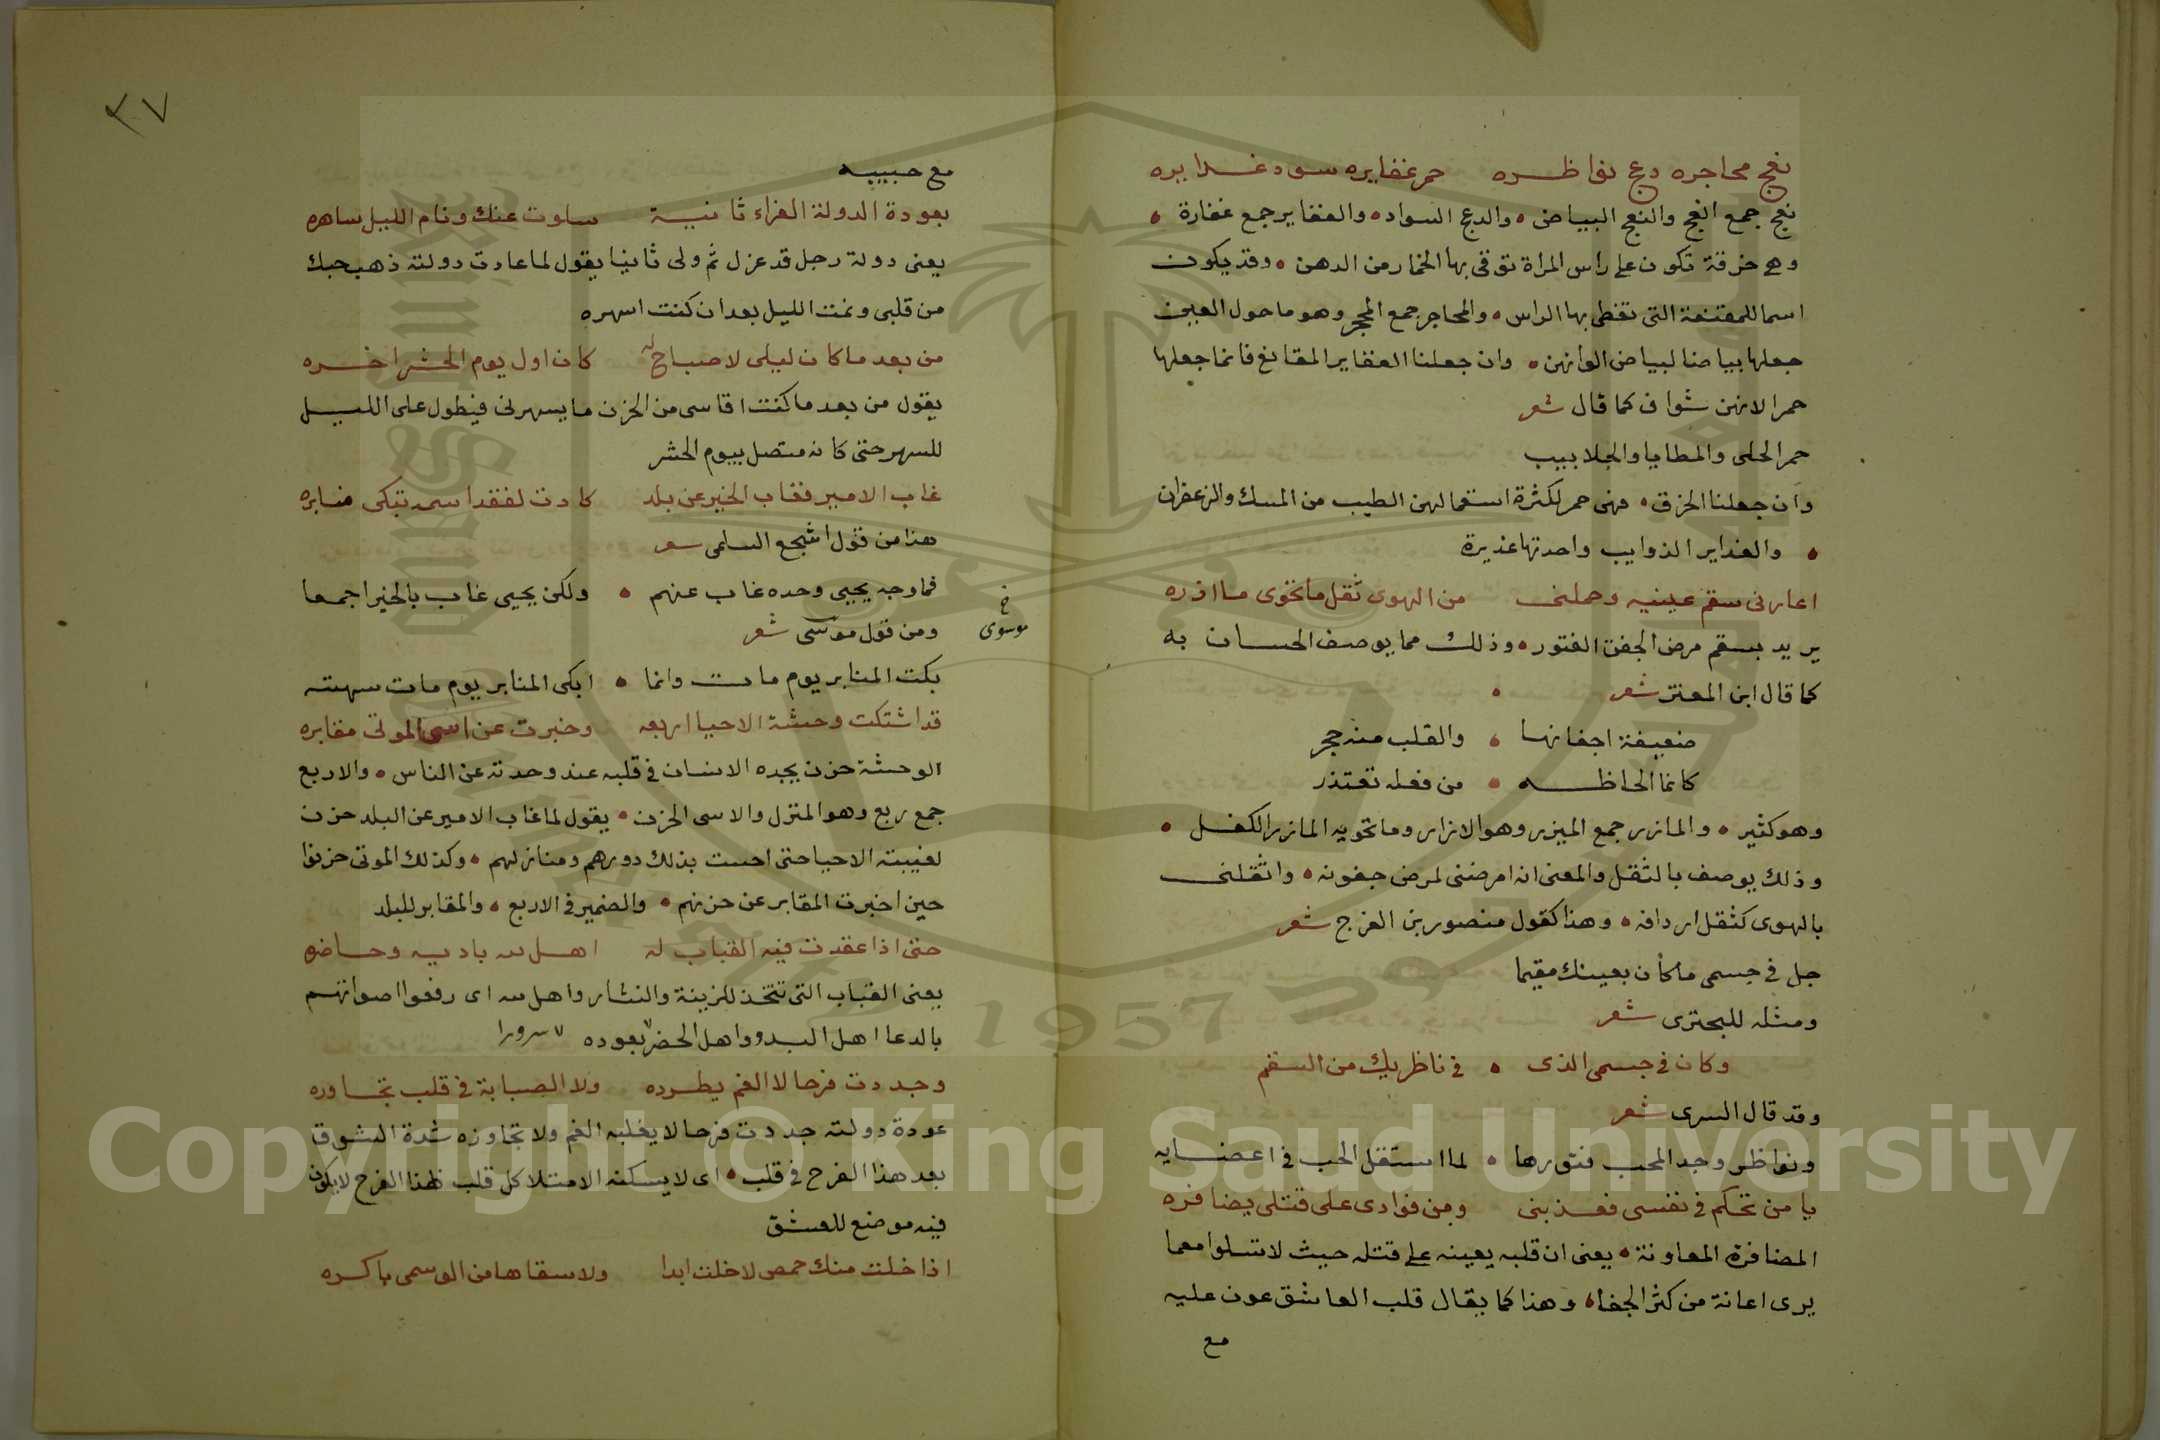 نعج محاجره دعج نواظره حمر غفايره سود غدايره
نعج جمع انعج والنعج البياض والدعج السواد والغفاير جمع غفارة
وهي خرقة تكون على راس المراة توقى بها الخمار من الدهن وقد يكون
اسما للمقنعة التى تغطى بها الراس والمحاجر جمع المحجر وهو ما حول العين
جعلها بياضا لبياض الوانهن وان جعلنا الغفاير المقانع فانما جعلها
حمر الانهن شواف كما قال شعر
حمر الحلى والمطايا والجلابيب
وان جعلنا الخرق فهى حمر لكثرة استعمالهن الطيب من المسك والزعفران
والغداير الذوايب واحدتها غديرة
اعارنى سقم عينيه وحملنى من الهوى ثقل ما تحوى مازره
يريد بسقم مرض الجفن الفتور وذلك مما يوصف الحسان به
كما قال ابن المعتز شعر
ضعيفة اجفانها والقلب منه حجر
كانما الحاظه من فعله تعتذر
وهو كثير والمازر جمع الميزر وهو الازار وما تحويه المازر الكفل
وذلك يوصف بالثقل والمعنى انه امرضنى لمرض جفونه واثقلنى
بالهوى كثقل اردافه وهذا كقول منصور بن الفرج شعر
حل في جسمى ما كان بعينك مقيما
ومثله للبحترى شعر
وكان في جسمى الذى في ناظريك من السقم
وقد قال السرى شعر
ونواظر وجد المحب فتورها لما استقل الحب في اعضايه
يا من تحكم في نفسى فعذبنى ومن فوادى على قتلى يضافره
المضافرة المعاونة يعنى ان قلبه يعينه على قتله حيث لا تسلوا معما
يرى اعانة من كثر الجفا وهذا كما يقال قلب العاشق عون عليه
مع
٣٧
مع حبيبه
بعودة الدولة الغراء ثانية سلوت عنك ونام الليل ساهره
يعنى دولة رجل قد عزل ثم ولى ثانيا يقول لما عادت دولته ذهب حبك
من قلبى ونمت الليل بعد ان كنت اسهره
من بعد ما كان ليلى لا صباح له كان اول يوم الحشر اخره
يقول من بعد ما كنت اقاسى من الحزن ما يسهرنى فيطول على الليل
للسهر حتى كانه متصل بيوم الحشر
غاب الامير فغاب الخير عن بلد كادت لفقد اسمه تبكى منابره
هذا من قول اشجع السلمى شعر
فما وجه يحيى وحده غاب عنهم ولكن يحيى غاب بالخير اجمعا
ومن قول موسى شعر
خ
موسوى
بكت المنابر يوم مات وانما ابكى المنابر يوم مات سهته
قد اشتكت وحشة الاحيا اربعه وخبرت عن اسى الموتى مقابره
الوحشة حزن يجده الانسان في قلبه عند وحدته عن الناس والاربع
جمع ربع وهو المنزل والاسى الحزن يقول لما غاب الامير عن البلد حزن
لغيبته الاحيا حتى احست بذلك دورهم ومنازلهم وكذلك الموتى حزنوا
حين اخبرت المقابر عن حزنهم والضمير في الاربع والمقابر للبلد
حتى اذا عقدت فيه القباب له اهل لله باديه وحاضره
يعنى القباب التى تتخذ للزينة والنثار واهل لله اى رفعوا اصواتهم
بالدعا اهل البدو واهل الحضر بعوده سرورا
وجددت فرحا لا الغم يطرده ولا الصبابة في قلب تجاوره
عودة دولته جددت فرحا لا يغلبه الغم ولا تجاوزه شدة الشوق
بعد هذا الفرح في قلب اى لا يسكنه الامتلا كل قلب لهذا الفرح لا يكون
فيه موضع للعشق
اذا خلت منك حمص لا خلت ابدا ولا سقاها من الوسمى باكره
Copyright © King Saud University
1957